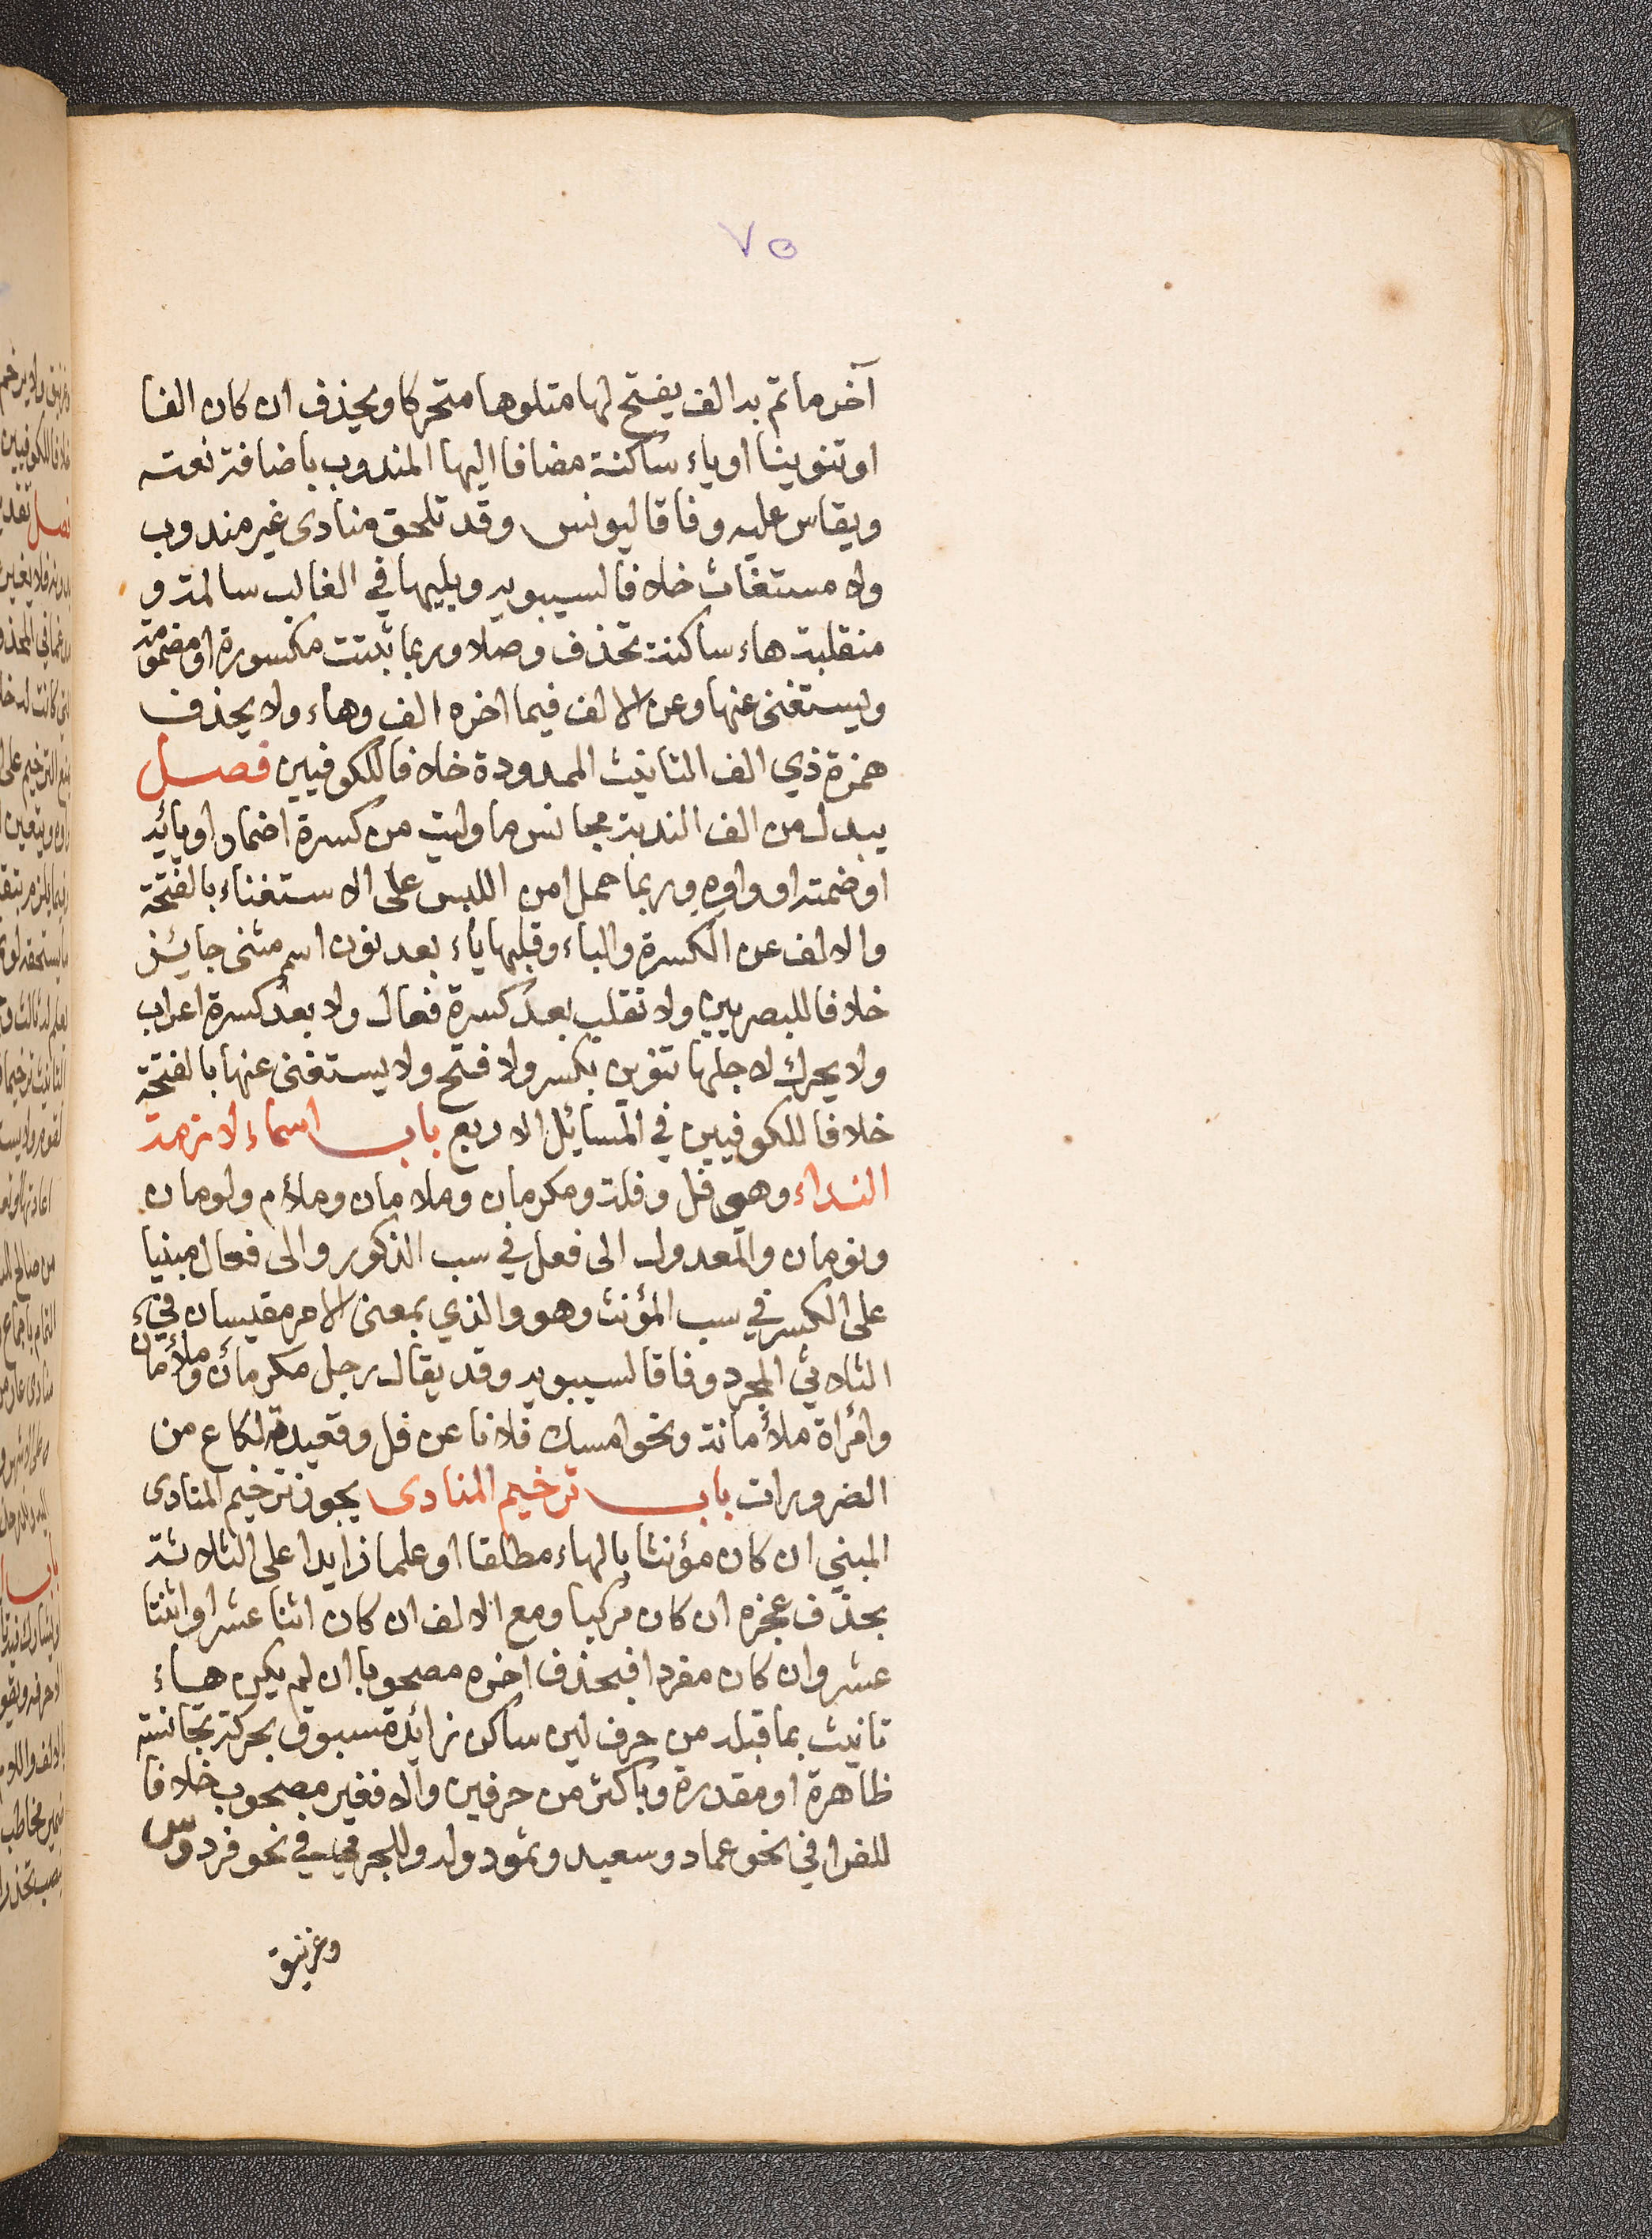 ٧٥
آخر ما تم به الف يفتح لها متلوها متحركا ويحذف ان كان الفا
او تنوينا او ياء ساكنة مضافا اليها المندوب باضافة نعته
ويقاس عليه وفاقا ليونس وقد تلحق منادى غير مندوب
ولا مستغاث خلافا لسيبويه ويليها في الغالب سالمة و
منقلبة هاء ساكنة تحذف وصلا وربما ثبتت مكسورة او مضمومة
ويستغنى عنها وعن الالف فيما اخره الف وهاء ولا يحذف
همزة ذي الف التانيث الممدودة خلافا للكوفيين فصل
يبدل من الف الندبة مجانس ما وليت من كسرة اضمار او يائه
او ضمته او واوه وربما حمل امن اللبس على الاستغناء بالفتحة
والالف عن الكسرة والياء وقلبها ياء بعد نون اسم مثنى جايئز
خلافا للبصريين ولا تقلب بعد كسرة فعال ولا بعد كسرة اعراب
ولا يحرك لاجلها تنوين بكسر ولا فتح ولا يستغنى عنها بالفتحة
خلافا للكوفيين في المسائل الاربع باب اسماء لازمة
النداء وهي فل وفلة ومكرمان وملامان وملأم ولومان
ونومان والمعدول الى فعل في سب الذكور والى فعال مبنيا
على الكسر في سب المؤنث وهو والذي بمعنى الامر مقيسان في
الثلاثي المجرد وفاقا لسيبويه وقد يقال رجل مكرمان وملأمان
وامرأة ملأمانة ونحو امسك فلانا عن فل وقعيدة لكاع من
الضرورات باب ترخيم المنادى يجوز ترخيم المنادى
المبني ان كان مؤنثا بالهاء مطلقا او علما زايدا على الثلاثة
بحذف عجزه ان كان مركبا ومع الالف ان كان اثنا عشر او اثنتا
عشر وان كان مفردا فبحذف اخره مصحوبا ان لم يكن هاء
تانيث بما قبله من حرف لين ساكن زائد مسبوق بحركة تجانسه
ظاهرة او مقدرة وباكثر من حرفين والا فغير مصحوب خلافا
للفرا في نحو عماد وسعيد وثمود وله وللجرمي في نحو فردوس
وغرنيق